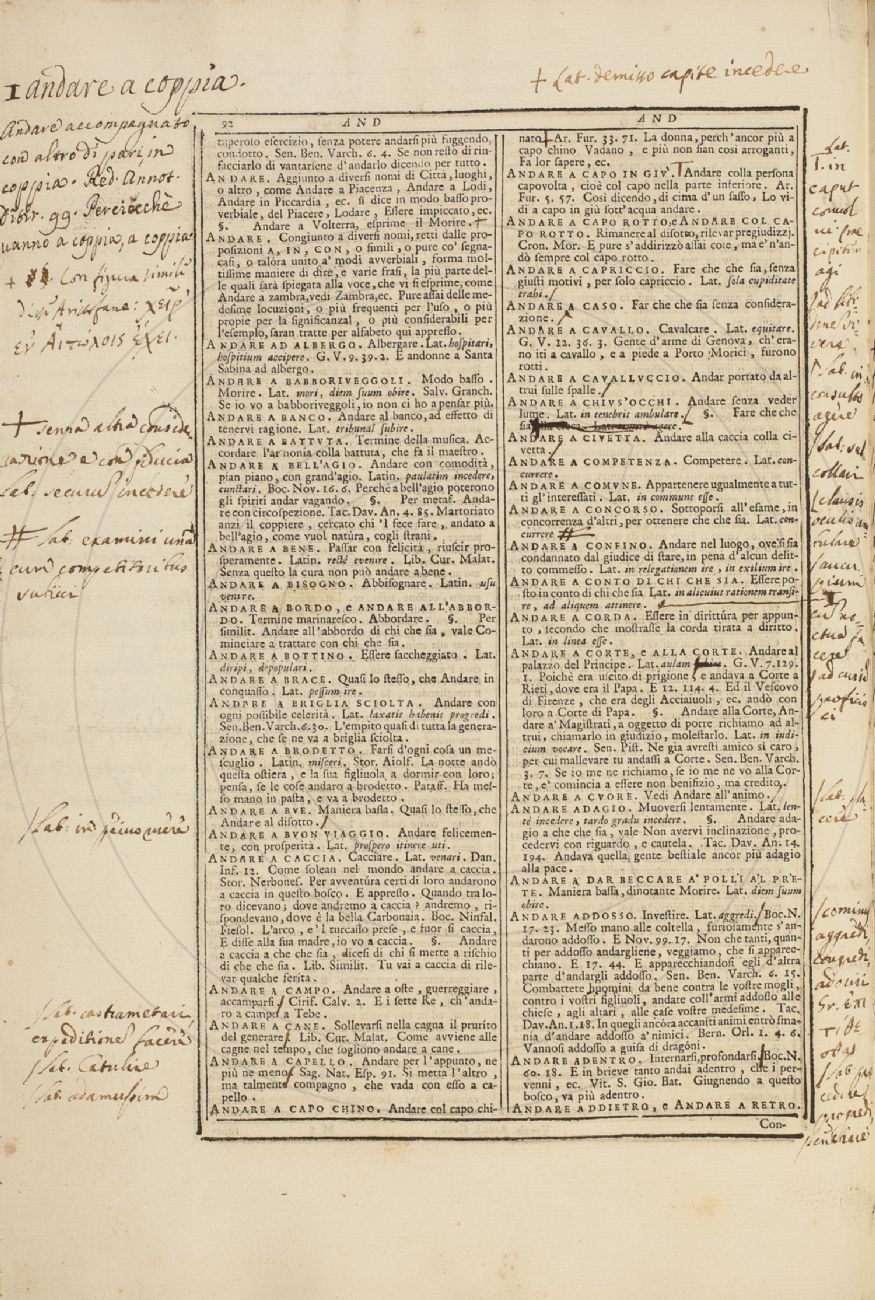 1 andare a coppia.
+ Lat. demisso capite incedere
Andare accompagnato
con altro di pari in
coppia. Red. Annot.
Ditir. 99. Perciocchè
vanno a coppia, a coppia
Con figura simili
+ senza altra conside
razione e con fiducia
Lat. securus incedere
# Lat. examini una
cum competitoribus
subici
Lat. in peius ruere
Lat. castrametari,
expeditionem facere
Lat. Catulire
Lat. adamussim
92 AND
tuperoso esercizio, senza potere andarsi più fuggendo,
condotto. Sen. Ben. Varch. 6. 4. Se non resto di rin-
facciarlo di vantarsene d'andarlo dicendo per tutto.
ANDARE. Aggiunto a diversi nomi di Città, luoghi,
o altro, come Andare a Piacenza, Andare a Lodi,
Andare in Piccardia, ec. si dice in modo basso pro-
verbiale, del Piacere, Lodare, Essere impiccato, ec.
§. Andare a Volterra, esprime il Morire.
ANDARE. Congiunto a diversi nomi, retti dalle pro-
posizioni A, IN, CON, o simili, o pure co' segna-
casi, o talora unito a' modi avverbiali, forma mol-
tissime maniere di dire, e varie frasi, la più parte del-
le quali sarà spiegata alla voce, che vi si esprime, come
Andare a zambra, vedi Zambra, ec. Pure assai delle me-
desime locuzioni, o più frequenti per l'uso, o più
proprie per la significanza, o più considerabili per
l'esempio, saran tratte per alfabeto qui appresso.
ANDARE AD ALBERGO. Albergare. Lat. hospitari,
hospitium accipere. G. V. 9. 39. 2. E andonne a Santa
Sabina ad albergo.
ANDARE A BABBORIVEGGOLI. Modo basso.
Morire. Lat. mori, diem suum obire. Salv. Granch.
Se io vo a babboriveggoli, io non ci ho a pensar più.
ANDARE A BANCO. Andare al banco, ad effetto di
tenervi ragione. Lat. tribunal subire.
ANDARE A BATTVTA. Termine della musica. Ac-
cordare l'armonia colla battuta, che fa il maestro.
ANDARE A BELL'AGIO. Andare con comodità,
pian piano, con grand'agio. Latin. paulatim incedere,
cunctari. Boc. Nov. 16. 6. Perchè a bell'agio poterono
gli spiriti andar vagando. §. Per metaf. Anda-
re con circospezione. Tac. Dav. An. 4. 85. Martoriato
anzi il coppiere, cercato chi 'l fece fare, andato a
bell'agio, come vuol natura, cogli strani.
ANDARE A BENE. Passar con felicità, riuscir pro-
speramente. Latin. rectè evenire. Lib. Cur. Malat.
Senza questo la cura non può andare a bene.
ANDARE A BISOGNO. Abbisognare. Latin. usu
venire.
ANDARE A BORDO, e ANDARE ALL'ABBOR-
DO. Termine marinaresco. Abbordare. §. Per
similit. Andare all'abbordo di chi che sia, vale Co-
minciare a trattare con chi che sia.
ANDARE A BOTTINO. Essere saccheggiato. Lat.
diripi, depopulari.
ANDARE A BRACE. Quasi lo stesso, che Andare in
conquasso. Lat. pessum ire.
ANDARE A BRIGLIA SCIOLTA. Andare con
ogni possibile celerità. Lat. laxatis habenis progredi.
Sen. Ben. Varch. 6. 30. L'empito quasi di tutta la genera-
zione, che se ne va a briglia sciolta.
ANDARE A BRODETTO. Farsi d'ogni cosa un me-
scuglio. Latin. misceri. Stor. Aiolf. La notte andò
questa ostiera, e la sua figliuola a dormir con loro;
pensa, se le cose andaro a brodetto. Pataff. Ha mes-
so mano in pasta, e va a brodetto.
ANDARE A BVE. Maniera bassa. Quasi lo stesso, che
Andare al disotto.
ANDARE A BVON VIAGGIO. Andare felicemen-
te, con prosperità. Lat. prospero itinere uti.
ANDARE A CACCIA. Cacciare. Lat. venari. Dan.
Inf. 12. Come solean nel mondo andare a caccia.
Stor. Nerbones. Per avventura certi di loro andarono
a caccia in questo bosco. E appresso. Quando tra lo-
ro dicevano; dove andremo a caccia? andremo, ri-
spondevano, dove è la bella Carbonaia. Boc. Ninfal.
Fiesol. L'arco, e 'l turcasso prese, e fuor si caccia,
E disse alla sua madre, io vo a caccia. §. Andare
a caccia a che che sia, dicesi di chi si mette a rischio
di che che sia. Lib. Similit. Tu vai a caccia di rile-
var qualche ferita.
ANDARE A CAMPO. Andare a oste, guerreggiare,
accamparsi. Cirif. Calv. 2. E i sette Re, ch'anda-
ro a campo a Tebe.
ANDARE A CANE. Sollevarsi nella cagna il prurito
del generare. Lib. Cur. Malat. Come avviene alle
cagne nel tempo, che sogliono andare a cane.
ANDARE A CAPELLO. Andare per l'appunto, ne
più ne meno. Sag. Nat. Esp. 91. Si metta l'altro,
ma talmente compagno, che vada con esso a ca-
pello.
ANDARE A CAPO CHINO. Andare col capo chi-
AND
nato. Ar. Fur. 33. 71. La donna, perch'ancor più a
capo chino Vadano, e più non sian così arroganti,
Fa lor sapere, ec.
ANDARE A CAPO IN GIV'. Andare colla persona
capovolta, cioè col capo nella parte inferiore. Ar.
Fur. 5. 57. Così dicendo, di cima d'un sasso, Lo vi-
di a capo in giù sott'acqua andare.
ANDARE A CAPO ROTTO, e ANDARE COL CA-
PO ROTTO. Rimanere al disotto, rilevar pregiudizj.
Cron. Mor. E pure s'addirizzò assai cose, ma e' n'an-
dò sempre col capo rotto.
ANDARE A CAPRICCIO. Fare che che sia, senza
giusti motivi, per solo capriccio. Lat. sola cupiditate
trahi.
ANDARE A CASO. Far che che sia senza considera-
zione.
ANDARE A CAVALLO. Cavalcare. Lat. equitare.
G. V. 12. 36. 3. Gente d'arme di Genova, ch'era-
no iti a cavallo, e a piede a Porto Morici, furono
rotti.
ANDARE A CAVALLUCCIO. Andar portato da al-
trui sulle spalle.
ANDARE A CHIVS'OCCHI. Andare senza veder
lume. Lat. in tenebris ambulare. §. Fare che che
ANDARE A CIVETTA. Andare alla caccia colla ci-
vetta.
ANDARE A COMPETENZA. Competere. Lat. con-
currere.
ANDARE A COMVNE. Appartenere ugualmente a tut-
ti gl'interessati. Lat. in commune esse.
ANDARE A CONCORSO. Sottoporsi all'esame, in
concorrenza d'altri, per ottenere che che sia. Lat. con-
currere #
ANDARE A CONFINO. Andare nel luogo, ove si sia
condannato dal giudice di stare, in pena d'alcun delit-
to commesso. Lat. in relegationem ire, in exilium ire.
ANDARE A CONTO DI CHI CHE SIA. Essere po-
sto in conto di chi che sia Lat. in alicuius rationem transi-
re, ad aliquem attinere.
ANDARE A CORDA. Essere in dirittura per appun-
to, secondo che mostrasse la corda tirata a diritto.
Lat. in linea esse.
ANDARE A CORTE, e ALLA CORTE. Andare al
palazzo del Principe. Lat. aulam G. V. 7. 129.
1. Poichè era uscito di prigione, e andava a Corte a
Rieti, dove era il Papa. E 12. 114. 4. Ed il Vescovo
di Firenze, che era degli Acciaiuoli, ec. andò con
loro a Corte di Papa. §. Andare alla Corte, An-
dare a' Magistrati, a oggetto di porre richiamo ad al-
trui, chiamarlo in giudizio, molestarlo. Lat. in iudi-
cium vocare. Sen. Pist. Ne gia avresti amico sì caro,
per cui mallevare tu andassi a Corte. Sen. Ben. Varch.
3. 7. Se io me ne richiamo, se io me ne vo alla Cor-
te, e' comincia a essere non benifizio, ma credito.
ANDARE A CVORE. Vedi Andare all'animo.
ANDARE ADAGIO. Muoversi lentamente. Lat. len-
tè incedere, tardo gradu incedere. §. Andare ada-
gio a che che sia, vale Non avervi inclinazione, pro-
cedervi con riguardo, e cautela. Tac. Dav. An. 14.
194. Andava quella gente bestiale ancor più adagio
alla pace.
ANDARE A DAR BECCARE A' POLLI AL PRE-
TE. Maniera bassa, dinotante Morire. Lat. diem suum
obire.
ANDARE ADDOSSO. Investire. Lat. aggredi. Boc. N.
17. 23. Messo mano alle coltella, furiosamente s'an-
darono addosso. E Nov. 99. 17. Non che tanti, quan-
ti per addosso andargliene, veggiamo, che si apparec-
chiano. E 17. 44. E apparecchiandosi egli d'altra
parte d'andargli addosso. Sen. Ben. Varch. 6. 15.
Combattete huomini da bene contra le vostre mogli,
contro i vostri figliuoli, andate coll'armi addosso alle
chiese, agli altari, alle case vostre medesime. Tac.
Dav. An. 1. 18. In quegli ancora accaniti animi entrò sma-
nia d'andare addosso a' nimici. Bern. Orl. 1. 4. 6.
Vannosi addosso a guisa di dragoni.
ANDARE ADENTRO. Internarsi, profondarsi. Boc. N.
60. 18. E in brieve tanto andai adentro, che i per-
venni, ec. Vit. S. Gio. Bat. Giugnendo a questo
bosco, va più adentro.
ANDARE ADDIETRO, e ANDARE A RETRO.
Con-
Lat.
in
caput